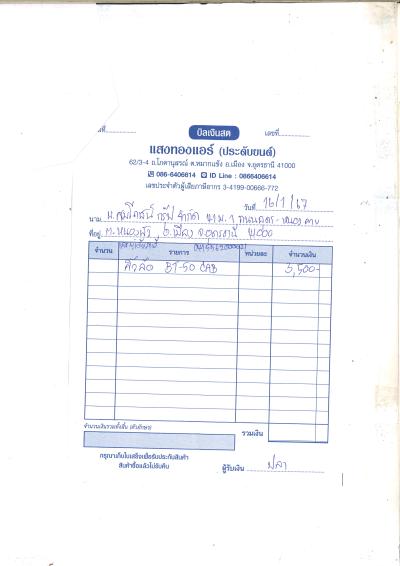 ที่
บิลเงินสด
เลขที่
แสงทองแอร์ (ประดับยนต์)
62/3-4 ถ.โภคานุสรณ์ ต.หมากแข้ง อ.เมือง จ.อุดรธานี 41000
086-6406614 ID Line : 0866406614
เลขประจำตัวผู้เสียภาษีอากร 3-4199-00666-772
วันที่ 16/1/67
นาม
ที่อยู่ ต. อ.เมือง จ.อุดรธานี 41000
จำนวน รายการ หน่วยละ จำนวนเงิน
BT-50 CAB 3,500-
จำนวนเงินรวมทั้งสิ้น (ตัวอักษร)
รวมเงิน
กรุณาเก็บใบเสร็จเพื่อรับประกันสินค้า
สินค้าซื้อแล้วไม่รับคืน
ผู้รับเงิน ปลา